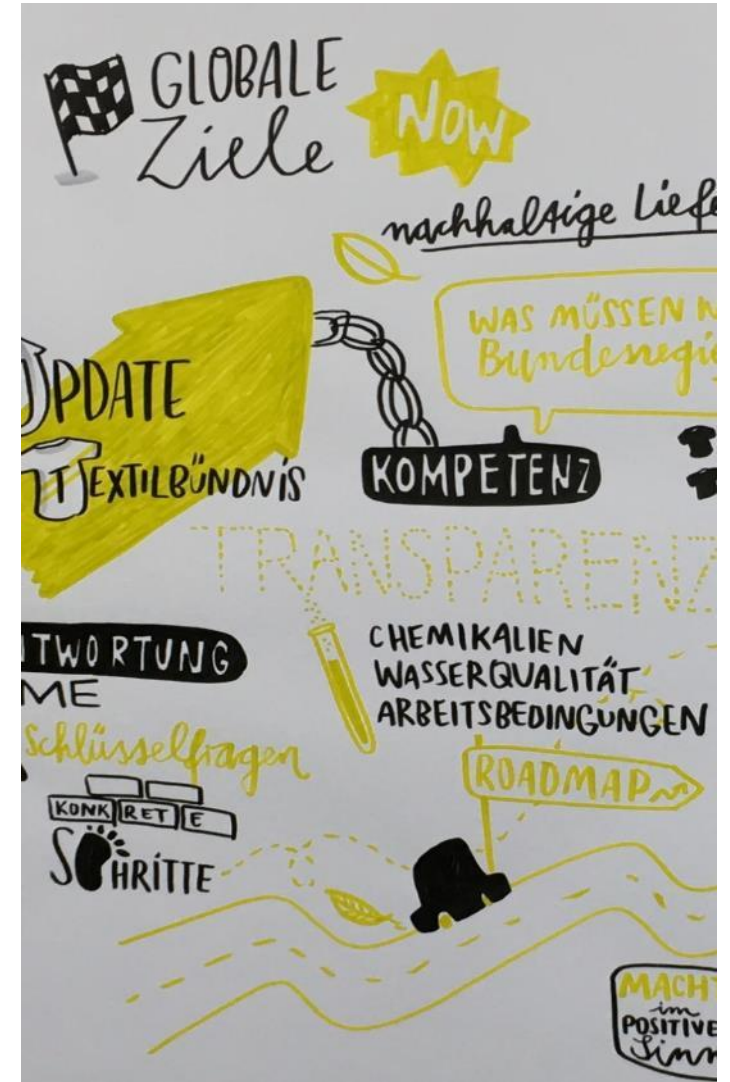 GLOBALE
Ziele
NOW
nachhaltige Liefe
WAS MÜSSEN
Bundesregie
UPDATE
TEXTILBÜNDNIS
KOMPETENZ
TRANSPARENZ
TWORTUNG
ME
CHEMIKALIEN
WASSERQUALITÄT
ARBEITSBEDINGUNGEN
Schlüsselfragen
KONKRETE
SCHRITTE
ROADMAP
MACHT
im
POSITIVE
Sinn